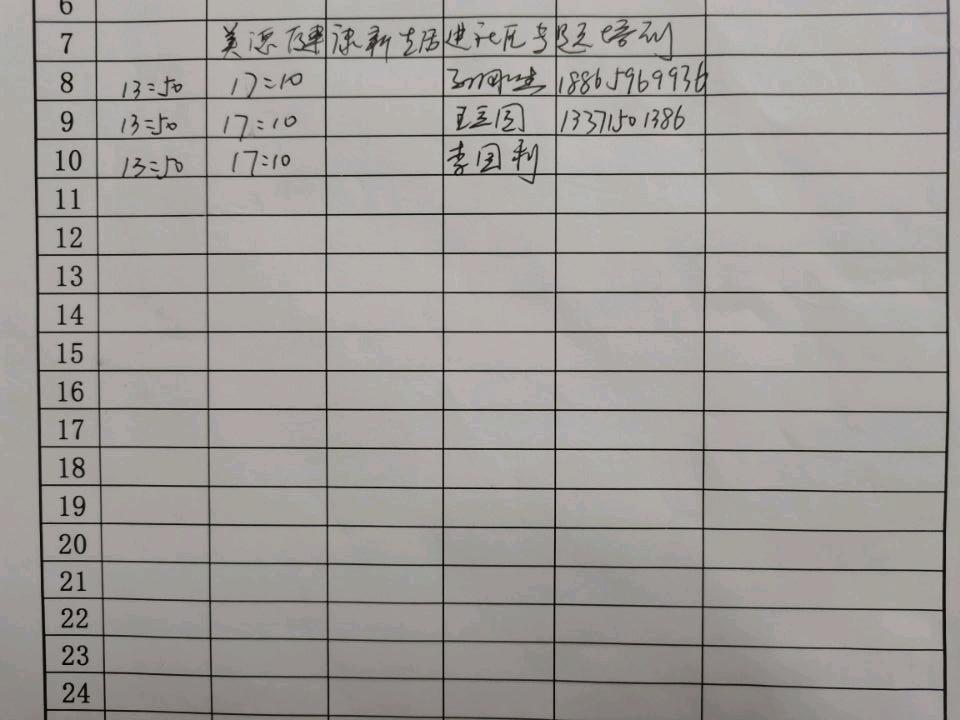 6
7 美源健康新生活进社区专题培训
8 13:50 17:10 18865969936
9 13:50 17:10 王立国 13371501386
10 13:50 17:10 李国利
11
12
13
14
15
16
17
18
19
20
21
22
23
24